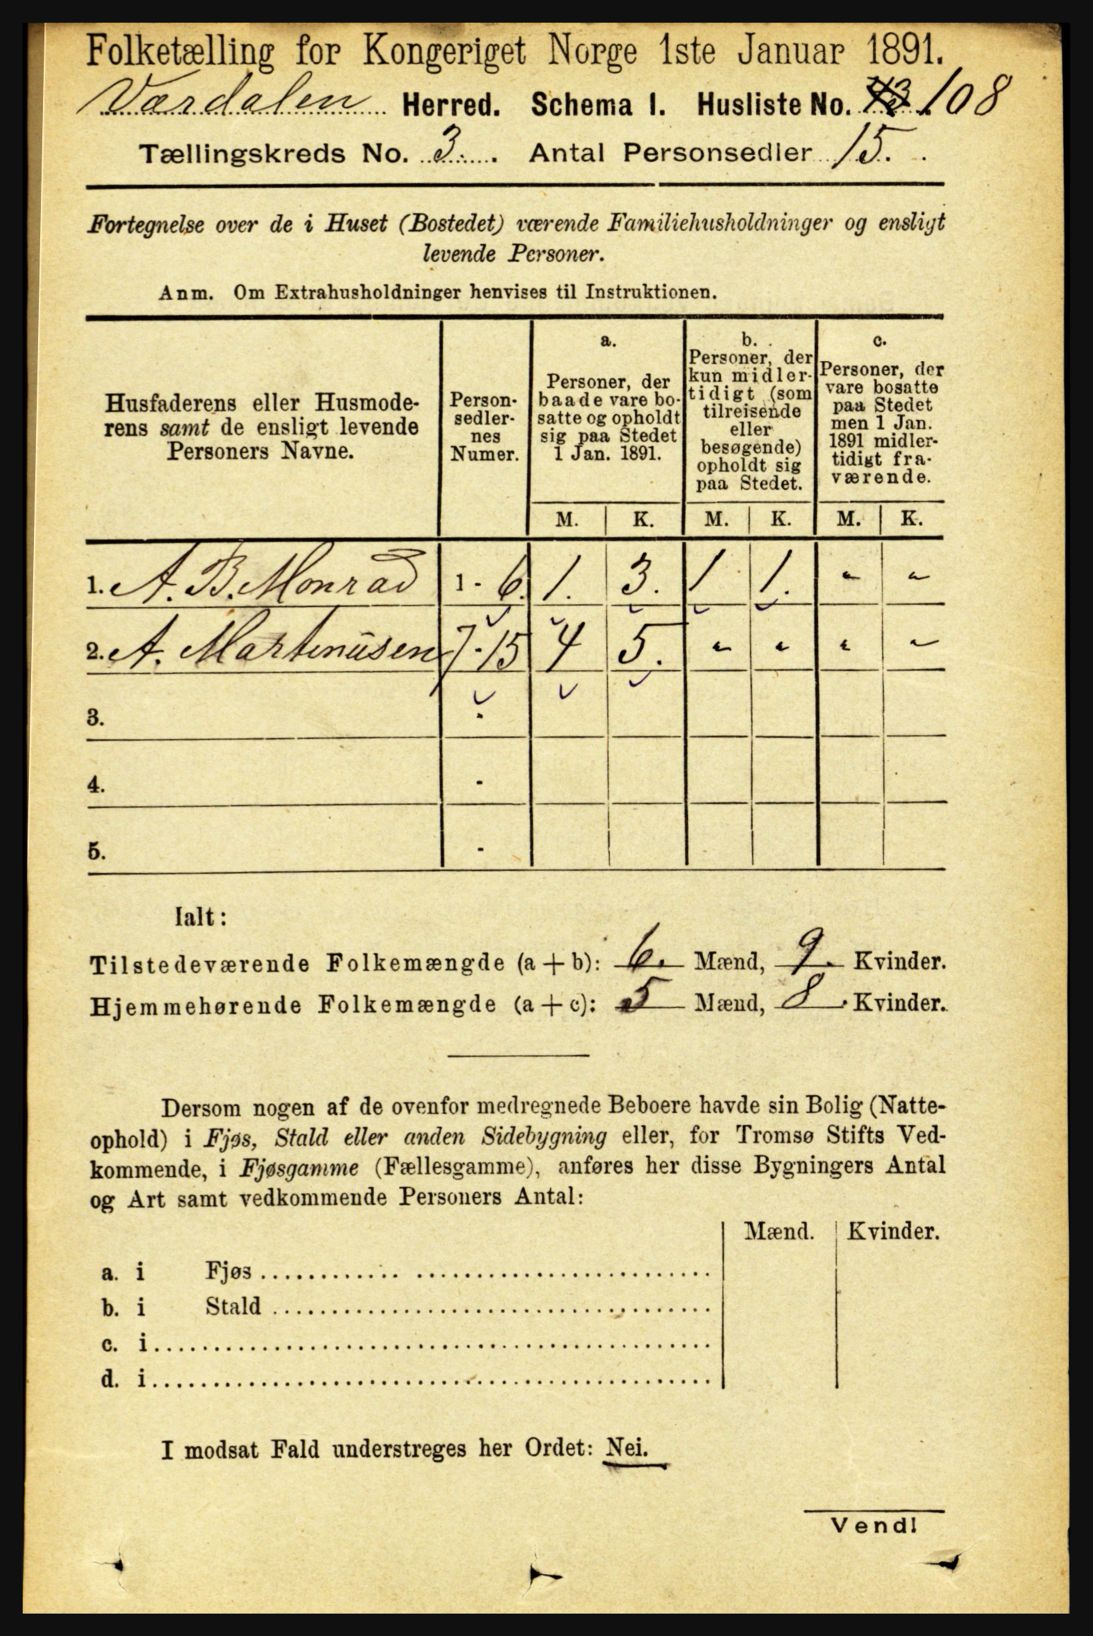 Folketælling for Kongeriget Norge 1ste Januar 1891.
Værdalen Herred. Schema I. Husliste No. 43 108
Tællingskreds No. 3. Antal Personsedler 15.
Fortegnelse over de i Huset (Bostedet) værende Familiehusholdninger og ensligt
levende Personer.
Anm. Om Extrahusholdninger henvises til Instruktionen.
Husfaderens eller Husmode-
rens samt de ensligt levende
Personers Navne.
Person-
sedler-
nes
Numer.
a.
Personer, der
baade vare bo-
satte og opholdt
sig paa Stedet
1 Jan. 1891.
b.
Personer, der
kun midler-
tidigt (som
tilreisende
eller
besøgende)
opholdt sig
paa Stedet.
c.
Personer, der
vare bosatte
paa Stedet
men 1 Jan.
1891 midler-
tidigt fra-
værende.
M. K. M. K. M. K.
1. A. B. Monrad 1 - 6. 1. 3. 1 1. " "
2. A. Martinusen 7 - 15 4 5. " " " "
3. -
4. -
5. -
Ialt:
Tilstedeværende Folkemængde (a + b): 6. Mænd, 9. Kvinder.
Hjemmehørende Folkemængde (a + c): 5 Mænd, 8. Kvinder.
Dersom nogen af de ovenfor medregnede Beboere havde sin Bolig (Natte-
ophold) i Fjøs, Stald eller anden Sidebygning eller, for Tromsø Stifts Ved-
kommende, i Fjøsgamme (Fællesgamme), anføres her disse Bygningers Antal
og Art samt vedkommende Personers Antal:
Mænd. Kvinder.
a. i Fjøs
b. i Stald
c. i
d. i
I modsat Fald understreges her Ordet: Nei.
Vend!